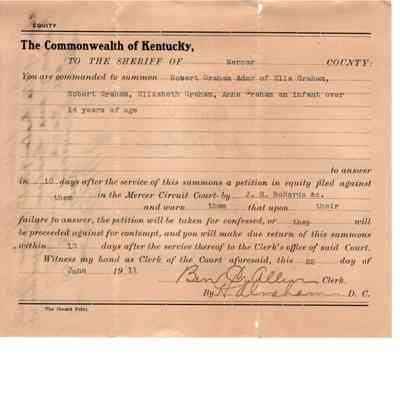 EQUITY
The Commonwealth of Kentucky,
TO THE SHERIFF OF Mercer COUNTY:
You are commanded to summon Robert Graham Admr of Ella Graham,
Robert Graham, Elizabeth Graham, Anna Graham an infant over
14 years of age
to answer
in 10 days after the service of this summons a petition in equity filed against
them in the Mercer Circuit Court by J. H. Rokards ad.
and warn them that upon their
failure to answer, the petition will be taken for confessed, or they will
be proceeded against for contempt, and you will make due return of this summons
within 13 days after the service thereof to the Clerk's office of said Court.
Witness my hand as Clerk of the Court aforesaid, this day of
June 1911 Ben Allin Clerk.
By D. C.
The Herald Print